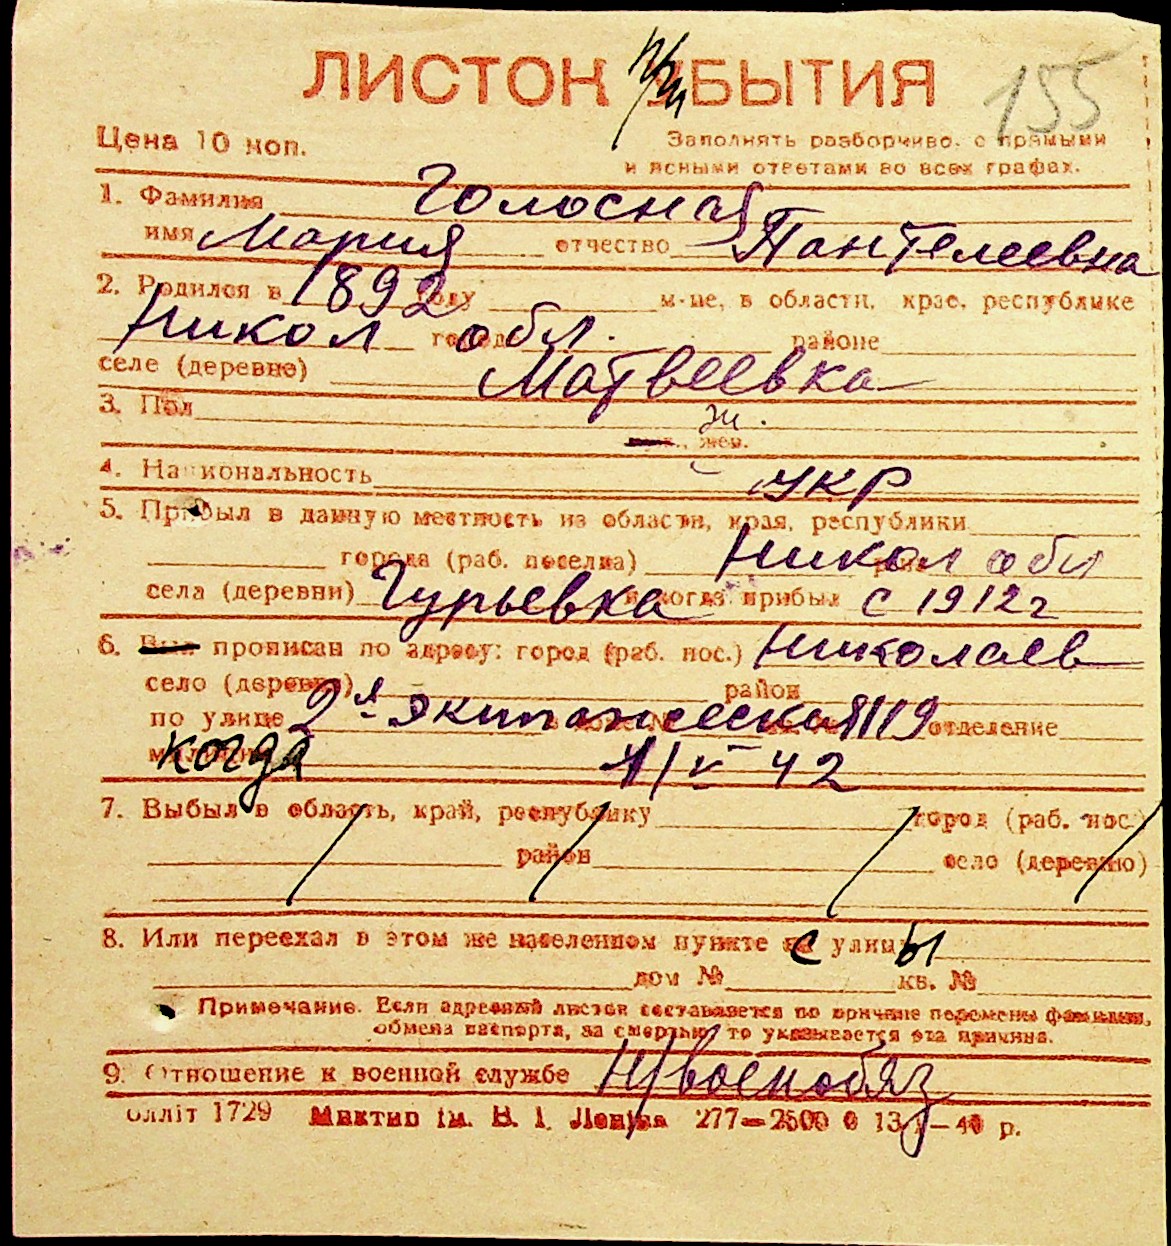 155
ЛИСТОК при УБЫТИЯ
Цена 10 коп.
Заполнять разборчиво, с прямыми
и ясными ответами во всех графах.
1. Фамилия Голосная
имя Мария отчество Пантелеевна
2. Родился в 1892 году м-це, в области, крае, республике
Никол город обл. районе
селе (деревне) Матвеевка
3. Пол ж.
муж., жен.
4. Национальность укр
5. Прибыл в данную местность из области, края, республики
города (раб. поселка) Никол обл
села (деревни) Гурьевка и когда прибыл с 1912 г
6. Был прописан по адресу: город (раб. пос.) Николаев
село (деревня) район
по улице 2я Экипажеская 119 отделение
милиции когда 1/V 42
7. Выбыл в область, край, республику город (раб. пос.)
район село (деревню)
8. Или переехал в этом же населенном пункте с улицы
дом № кв. №
Примечание. Если адресный листок составляется по причине перемены фамилии,
обмена паспорта, за смертью, то указывается эта причина.
9. Отношение к военной службе Н/военнобяз
олліт 1729 Миктип ім. В. І. Леніна 277—2500 0 13 — 40 р.